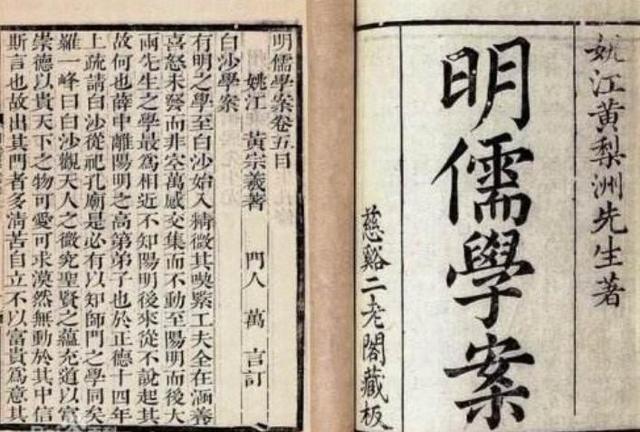 姚江黃梨洲先生著
明儒學案
慈谿二老閣藏板
明儒學案卷五目
姚江 黃宗羲著 門人 萬 言訂
白沙學案
有明之學至白沙始入精微其喫緊工夫全在涵養
喜怒未發而非空萬感交集而不動至陽明而後大
兩先生之學最為相近不知陽明後來從不說起其
故何也薛中離陽明之高弟弟子也於正德十四年
上疏請白沙從祀孔廟是必有以知師門之學同矣
羅一峰曰白沙觀天人之微究聖賢之蘊充道以富
崇德以貴天下之物可愛可求漠然無動於其中信
斯言也故出其門者多清苦自立不以富貴為意其